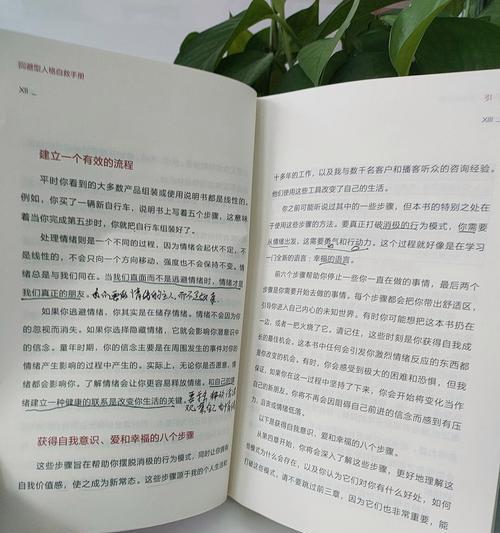 回避型人格自救手册
XII
建立一个有效的流程
平时你看到的大多数产品组装或使用说明书都是线性的。
例如，你买了一辆新自行车，说明书上写着五个步骤，这意味
着当你完成第五步时，你就把自行车组装好了。
处理情绪则是一个不同的过程，因为情绪会起伏不定，不
是线性的，不会只向一个方向移动，强度也不会保持不变。情
绪总是与我们同在。当我们直面而不是逃避情绪时，情绪才是
我们真正的朋友。
如果你逃避情绪，你其实是在储存情绪。情绪不会因为你
的忽视而消失。如果你选择隐藏情绪，它就会影响你潜意识中
的信念。童年时期，你的信念主要是在周围发生的事件对你的
情绪产生影响的过程中产生的。实际上，无论你是否愿意，情
绪都会影响你。了解情绪会让你更容易释放情绪。和自己的情
绪建立一种健康的联系是改变你生活的关键。
获得自我意识、爱和幸福的八个步骤
这些步骤旨在帮助你摆脱消极的行为模式，同时让你拥有
自我价值感，使之成为新常态。这些步骤源于我的个人生活和
引
XIII
十多年的工作，以及我与数千名客户和播客听众的咨询经验。
他们使用这些工具改变了自己的生活。
你之前可能听说过其中的一些步骤，但本书的特别之处在
于使用这些步骤的方法。要真正打破消极的行为模式，你需要
从情绪出发，这需要勇气和行动力。这个过程就好像是在学习
一门全新的语言：幸福的语言。
前六个步骤帮助你停止做一些你一直在做的事情，最后两个
步骤是你需要开始去做的事情。每个步骤都会把你带出舒适区，
引导你进入自己内心的未知世界。有时你可能想把这本书扔在
一边，或者一把火烧了它。请记住，这些时刻是你获得自我成
长的最佳机会。这本书中任何会引发你激烈情绪反应的东西都
是你改变的机会。有时，你会感受到极大的困难和恐惧，但我
保证，如果你在这一过程中坚持了下来，你会开始将变化当作
自己的新朋友。你将不再会因阻碍自己前进的信念而感到有压
力、沮丧或情绪低落。
以下是获得自我意识、爱和幸福的八个步骤。
从第四章开始，你将会深入了解这些步骤，更好地理解这
些模式为什么会存在，以及你认为它们对你有什么好处，如何
打破这些模式，请不要跳过前三章，因为它们也非常重要，能